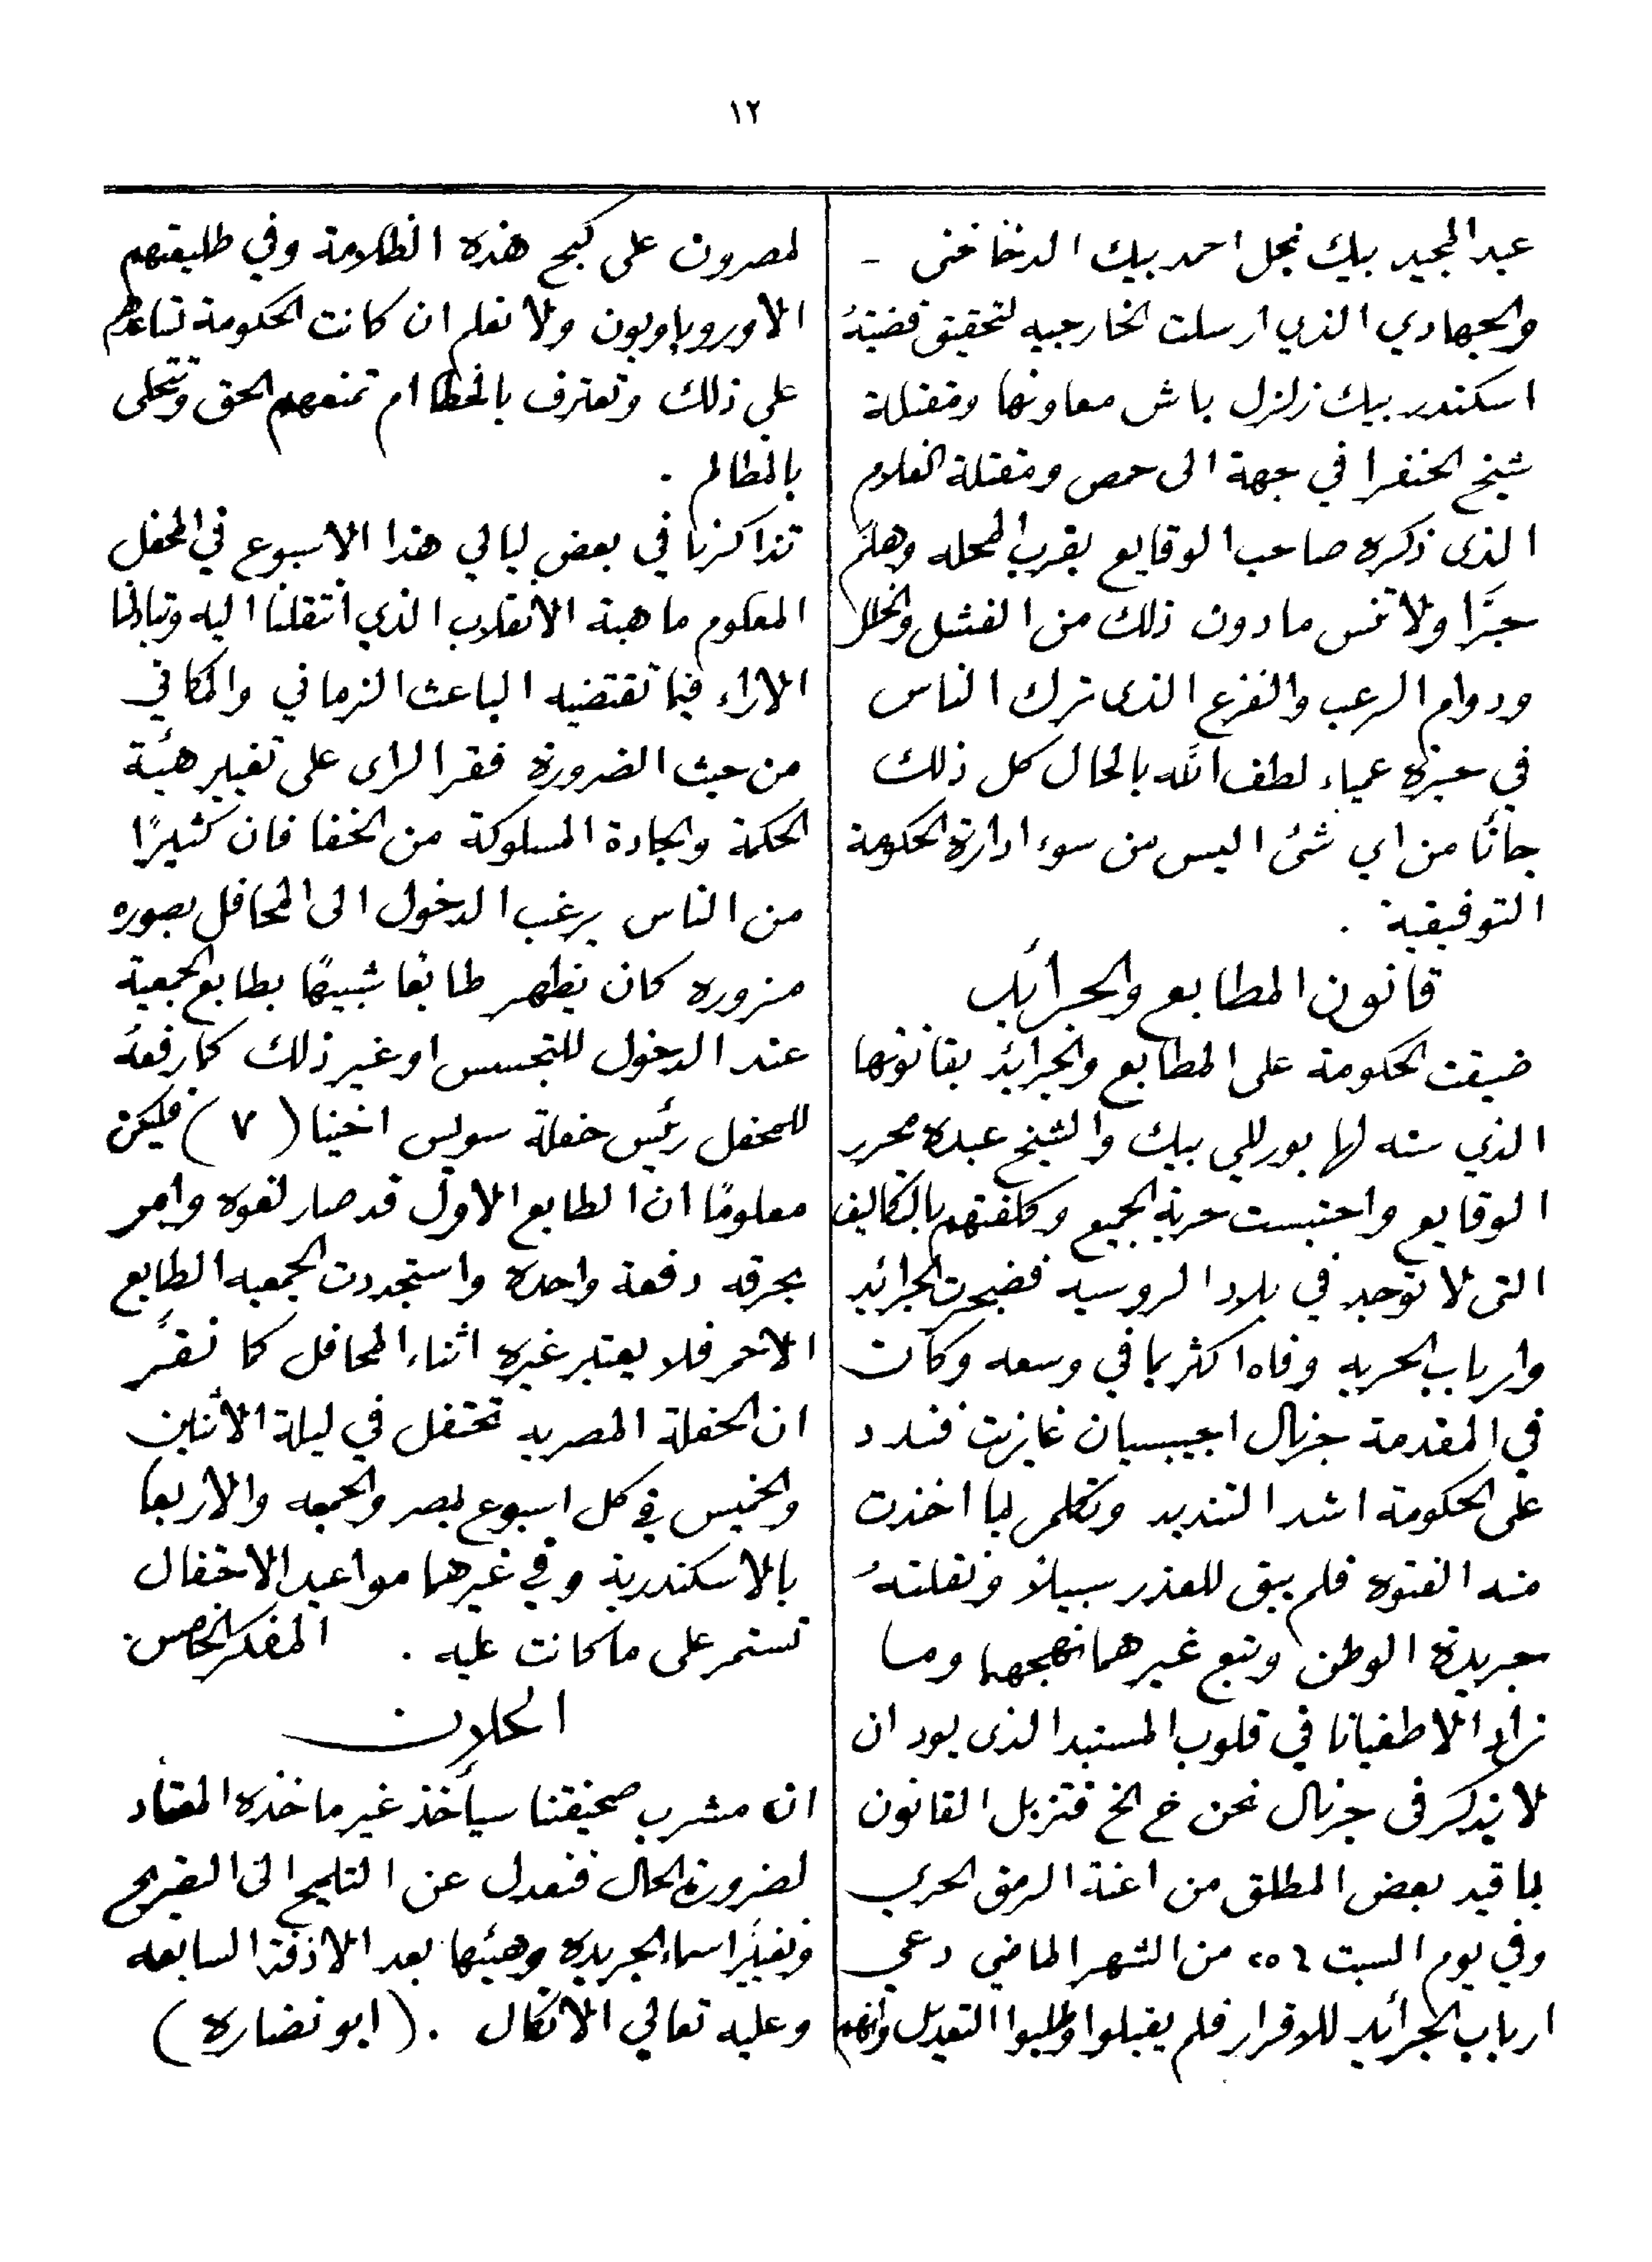 ١٢
عبد المجيد بيك نجل احمد بيك الدخاخنى -
والجهادي الذي ارسلت الخارجيه لتحقيق قضيتهُ
اسكندر بيك زلزل باش معاونها ومقتلة
شيخ الخفرا في جهة الى حمص ومقتلة الغلام
الذى ذكره صاحب الوقايع بقرب المحله وهلم
جرَّا ولا تنس ما دون ذلك من الفشل والخلل
ودوام الرعب والفزع الذى ترك الناس
في حيرة عمياء لطف الله بالحال كل ذلك
جاىًٔا من اي شئ اليس من سوء ادارة الحكومة
التوفيقية .
قانون المطابع والجرائد
ضيقت الحكومة على المطابع والجرائد بقانونها
الذي سنه لها بورللي بيك والشيخ عبده محرر
الوقايع واحتبست حرية الجميع وكلفتهم بالتكاليف
التى لا توجد في بلاد الروسيه فضجرت الجرائد
وارباب الحريه وفاه اكثر بما في وسعه وكان
في المقدمة جرنال اجيبسيان غازيت فندد
على الحكومة اشد التنديد وتكلم بما اخذت
منه الفتوه فلم يبق للعذر سبيلاً ونقلتهُ
جريدة الوطن وتبع غيرهما نهجهما وما
زاد الا طغيانا في قلوب المستبد الذى يود ان
لا يذكر فى جرنال نحن خ الخ فتزبل القانون
بما قيد بعض المطلق من اعنة الرمق الحرى
وفي يوم السبت ٢٥ من الشهر الماضي دعي
ارباب الجرائد للاقرار فلم يقبلوا وطلبوا التعديل وانهم
لمصرون على كبح هذه الظلامة وفي طليعتهم
الاوروباويون ولا نعلم ان كانت الحكومة تساعدهم
على ذلك وتعترف بالخطا ام تمنعهم الحق وتتحلى
بالمظالم .
تذاكرنا في بعض ليالي هذا الاسبوع في المحفل
المعلوم ماهية الانقلاب الذي انتقلنا اليه وتبادلنا
الاراء فيما تقتضيه الباعث الزماني والمكاني
من حيث الضرورة فقر الراى على تغيير هيئة
الحكمة والجادة المسلوكة من الخفا فان كثيرًا
من الناس يرغب الدخول الى المحافل بصوره
مزوره كان يظهر طابعًا شبيهًا بطابع الجمعية
عند الدخول للتجسس او غير ذلك كما رفعهُ
للمحفل رئيس حفلة سويس اخينا (٧) فليكن
معلومًا ان الطابع الاول قد صار لغوه وامر
بحرقه دفعة واحدة واستجددت الجمعيه الطابع
الاحمر فلا يعتبر غيره اثناء المحافل كما نقرّ
ان الحفلة المصريه تحتفل في ليلة الاثنين
والخميس في كل اسبوع بمصر والجمعه والاربعا
بالاسكندرية وفي غيرهما مواعيد الاحتفال
تستمر على ما كانت عليه . المفكر الخاص
اعلان
ان مشرب صحيفتنا سيأخذ غير ماخذه المعتاد
لضرورة الحال فنعدل عن التلميح الى التصريح
ونغيّر اسماء الجريده وهيئتها بعد الازفة السابعه
وعليه تعالي الاتكال . (ابو نضاره)